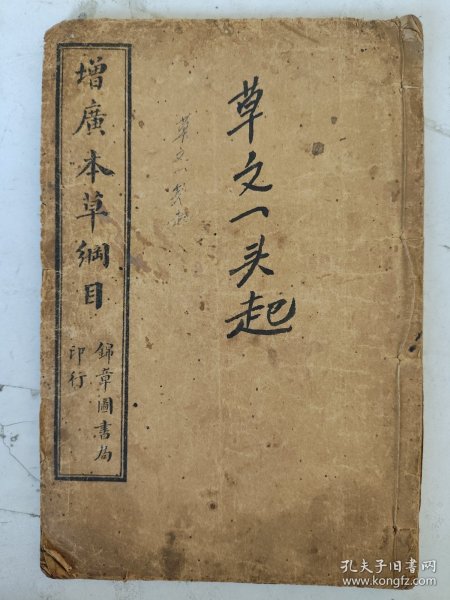 增廣本草綱目
錦章圖書局
印行
草文一头起
草文一头起
孔夫子旧书网
www.kongfz.com